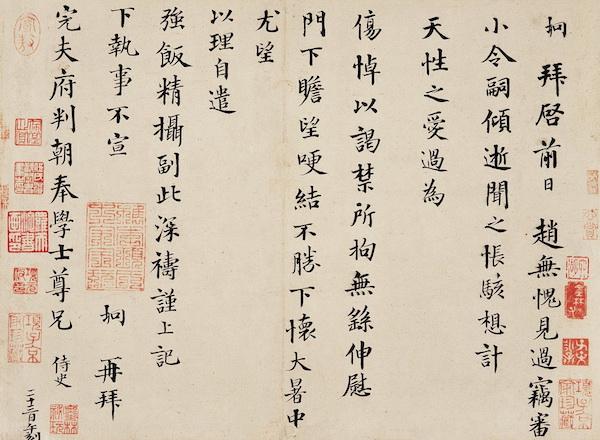 坰 拜啓前日 趙無愧見過竊審
小令嗣傾逝聞之悵駭想計
天性之愛過為
傷悼以謁禁所拘無繇伸慰
門下瞻望哽結不勝下懷大暑中
尤望
以理自遣
強飯精攝副此深禱謹上記
下執事不宣 坰 再拜
完夫府判朝奉學士尊兄 侍史